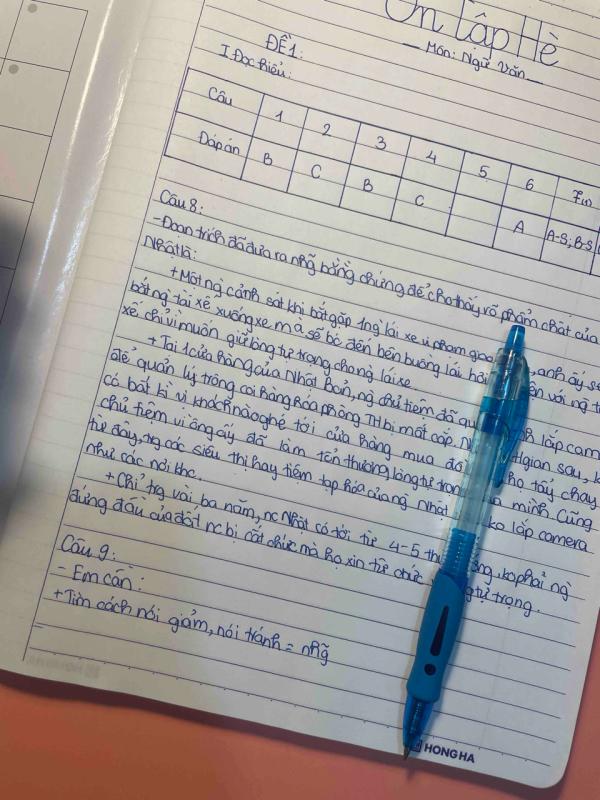 Ôn Tập Hè
Môn: Ngữ Văn
ĐỀ 1:
I Đọc hiểu:
Câu 1 2 3 4 5 6
Đáp án B C B C A A-S; B-S
Câu 8:
-Đoạn trích đã đưa ra nhg̃ bằng chứng để cho thấy rõ phẩm chất của
Nhật là:
+ Một ng cảnh sát khi bắt gặp 1 ng lái xe vi phạm giao , anh ấy sẽ
bắt ng tài xế xuống xe mà sẽ bỏ đến bên buồng lái với ng
xế chỉ vì muốn giữ lòng tự trọng cho ng lái xe
+ Tại 1 cửa hàng của Nhật Bản, ng chủ tiệm đã lắp cam
để quản lý trông coi hàng hóa phòng TH bị mất cắp. tgian sau,
có bất kì vị khách nào ghé tới cửa hàng mua họ tẩy chay
chủ tiệm vì ông ấy đã làm tổn thương lòng tự mình. Cũng
từ đây, trg các siêu thị hay tiệm tạp hóa của ng Nhật ko lắp camera
như các nơi khc.
+ Chỉ trg vài ba năm, nc Nhật có tới từ 4-5 , ko phải ng
đứng đầu của đất nc bị cắt chức mà họ xin từ chức tự trọng.
Câu 9:
- Em cần:
+ Tìm cách nói giảm, nói tránh = nhg̃
HONG HA